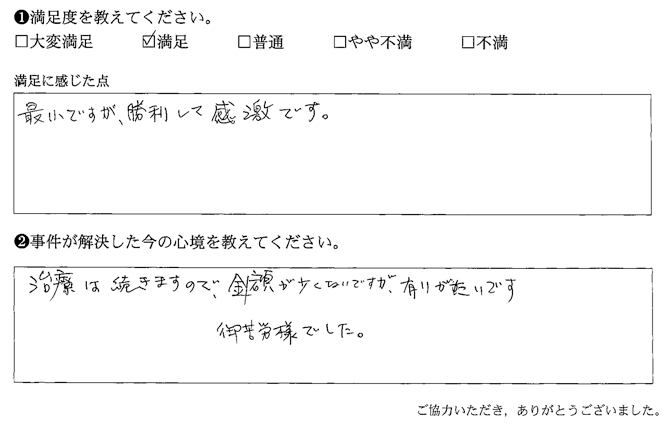 ❶満足度を教えてください。
□大変満足 ☑満足 □普通 □やや不満 □不満
満足に感じた点
最小ですが、勝利して感激です。
❷事件が解決した今の心境を教えてください。
治療は続きますので、金額が少くないですが、有りがたいです
御苦労様でした。
ご協力いただき，ありがとうございました。